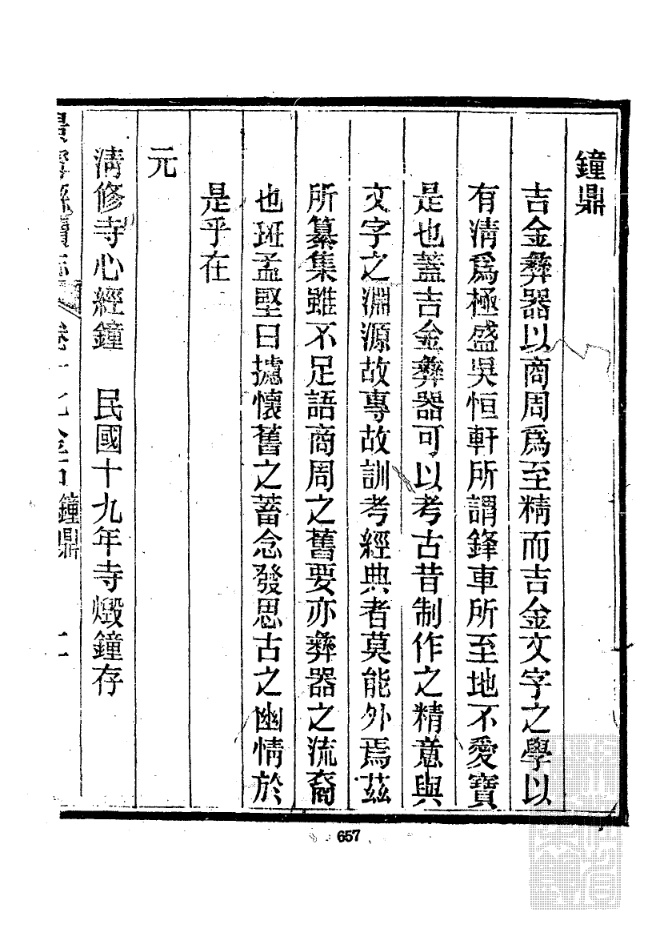 鐘鼎
吉金彝器以商周爲至精而吉金文字之學以
有清爲極盛吳恒軒所謂鋒車所至地不愛寶
是也蓋吉金彝器可以考古昔制作之精意與
文字之淵源故專故訓考經典者莫能外焉茲
所纂集雖不足語商周之舊要亦彝器之流裔
也班孟堅曰攄懷舊之蓄念發思古之幽情於
是乎在
元
清修寺心經鐘　民國十九年寺燬鐘存
縣續志 卷十 鐘鼎 二
657